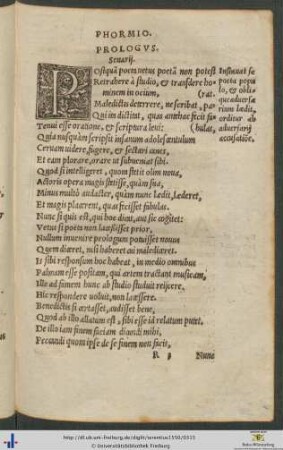 PHORMIO.
PROLOGVS.
Senarij.
Postquã poeta uetus poetã non potest
Retrahere à studio, & transdere ho-
minem in ocium,
Maledictis deterrere, ne scribat, pa-
(rat.
Qui ita dictitat, quas antehac fecit fa
Tenui esse oratione, & scriptura leui: (bulas,
Quia nusquàm insanum scripsit adolescentulum
Ceruam uidere fugere, & sectari canes,
Et eam plorare, orare ut subueniat sibi.
Quod si intelligeret, quom stetit olim noua,
Actoris opera magis stetisse, quàm sua,
Minus multò audacter, quàm nunc lædit, læderet,
Et magis placerent, quas fecisset fabulas.
Nunc si quis est, qui hoc dicat, aut sic cogitet:
Vetus si poeta non lacessisset prior,
Nullum inuenire prologum potuisset nouus
Quem diceret, nisi haberet cui malediceret.
Is sibi responsum hoc habeat, in medio omnibus
Palmam esse positam, qui artem tractant musicam,
Ille ad famem hunc ab studio studuit reijcere,
Hic respondere uoluit, non lacessere.
Benedictis si certasset, audisset bene,
Quod ab illo allatum est, sibi esse id relatum putet.
De illo iam finem faciam dicundi mihi,
Peccandi quom ipse de se finem non facit.
Nunc
Insinuat se
poeta popu
lo, & obli-
que aduersa
rium lædit,
ac
aduersarij
http://dl.ub.uni-freiburg.de/diglit/terentius1550/0315
© Universitätsbibliothek Freiburg